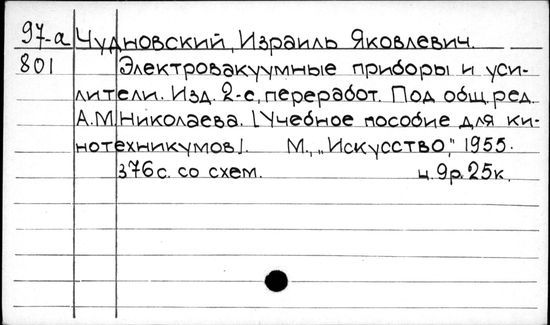 97-а Чудновский, Израиль Яковлевич.
801 Электровакуумные приборы и уси-
лители. Изд. 2-е, переработ. Под общ. ред.
А.М. Николаева. [Учебное пособие для ки-
нотехникумов]. М., „Искусство", 1955.
376 с. со схем. ц. 9р. 25к.